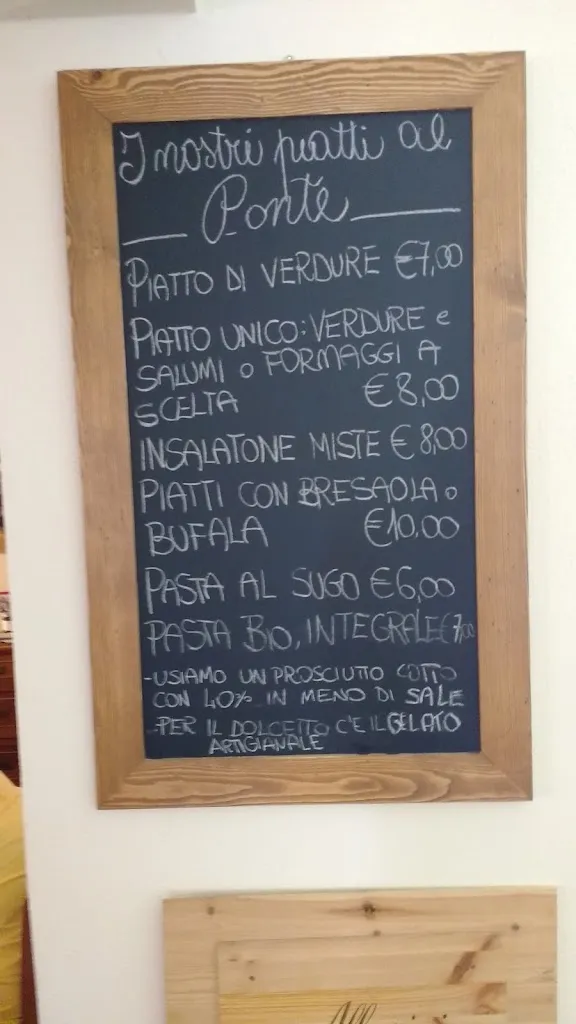 I nostri piatti al
Ponte
PIATTO DI VERDURE €7,00
PIATTO UNICO: VERDURE e
SALUMI o FORMAGGI A
SCELTA €8,00
INSALATONE MISTE €8,00
PIATTI CON BRESAOLA o
BUFALA €10,00
PASTA AL SUGO €6,00
PASTA BIO, INTEGRALE €7,00
-USIAMO UN PROSCIUTTO COTTO
CON 40% IN MENO DI SALE
-PER IL DOLCETTO C'E IL GELATO
ARTIGIANALE